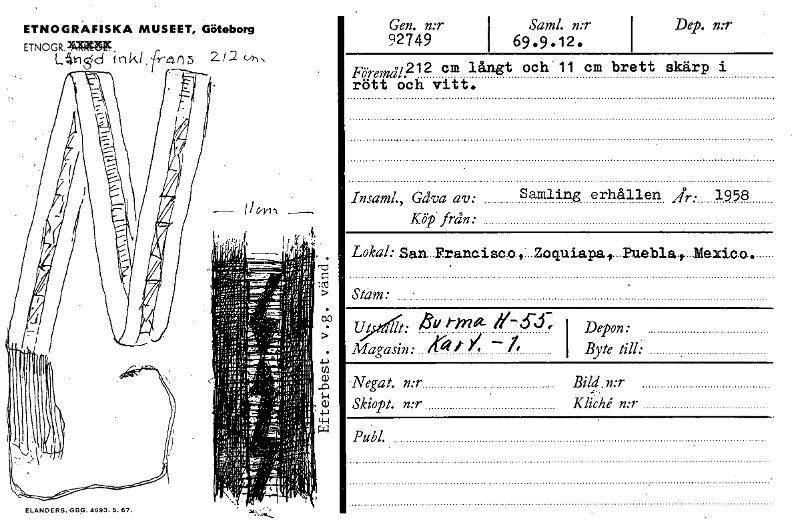 ETNOGRAFISKA MUSEET, Göteborg
ETNOGR.
Längd inkl. frans 212 cm.
11 cm
Efterbest. v.g. vänd.
ELANDERS, GBG. 4693. 5. 67.
Gen. n:r Saml. n:r Dep. n:r
92749 69.9.12.
Föremål: 212 cm långt och 11 cm brett skärp i
rött och vitt.
Insaml., Gåva av: Samling erhållen År: 1958
Köp från:
Lokal: San Francisco, Zoquiapa, Puebla, Mexico.
Stam:
Utställt: Burma H-55. Depon:
Magasin: Kart. -1. Byte till:
Negat. n:r Bild n:r
Skiopt. n:r Kliché n:r
Publ.